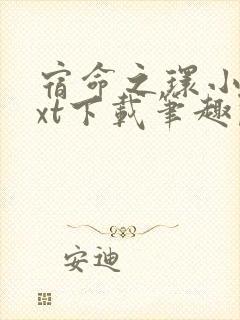 宿命之环小
xt下载笔趣
安迪